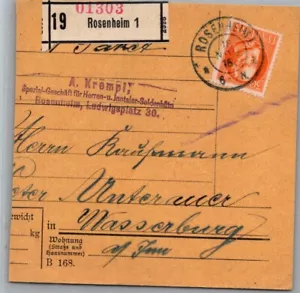 01303
19
Rosenheim 1
ROSENHEIM
A. Krempl
Spezial-Geschäft für Herren-
Rosenheim, Ludwigsplatz 30.
Herrn Kaufmann
Peter Unterauer
in Wasserburg
a/Inn
wicht
kg
Wohnung
(Straße und
Hausnummer)
B 168.